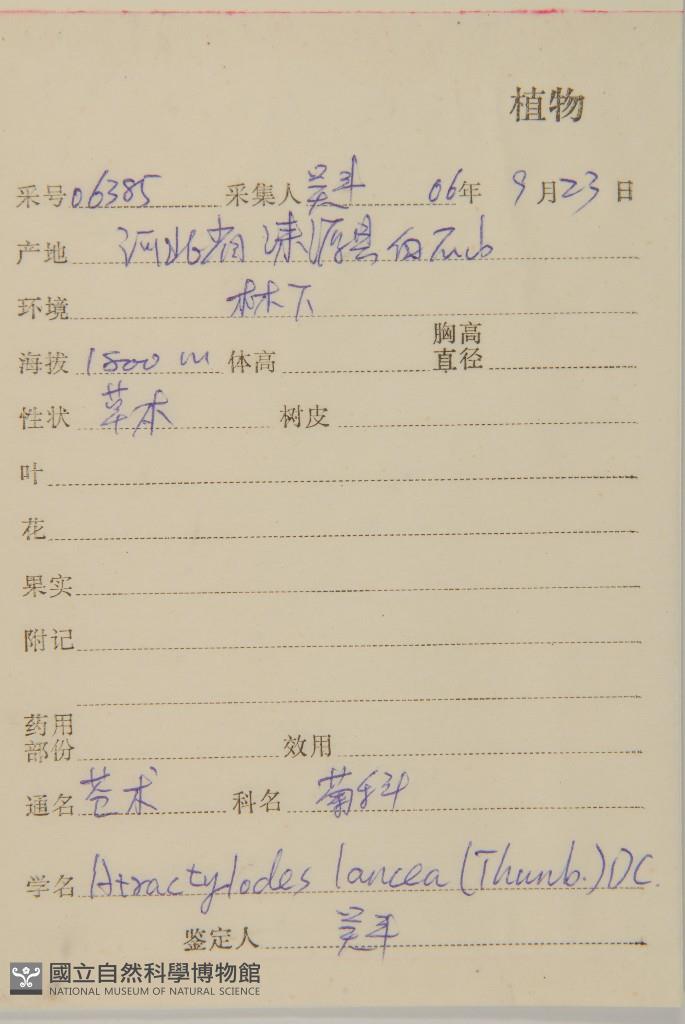 植物
采号 06385 采集人 吴斗 06年 9月23日
产地 河北省涞源县白石山
环境 林下
胸高
海拔 1800 m 体高 直径
性状 草本 树皮
叶
花
果实
附记
药用
部份 效用
通名 苍术 科名 菊科
学名 Atractylodes lancea (Thunb.) DC.
鉴定人 吴斗
國立自然科學博物館
NATIONAL MUSEUM OF NATURAL SCIENCE